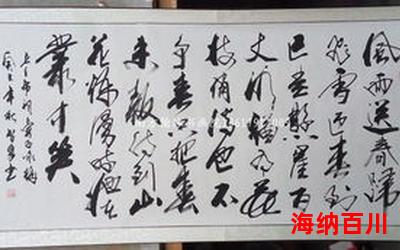 風雨送春歸
飛雪迎春到
已是懸崖百
丈冰猶有花
枝俏俏也不
争春只把春
来報待到山
花爛漫時她在
叢中笑
海纳百川